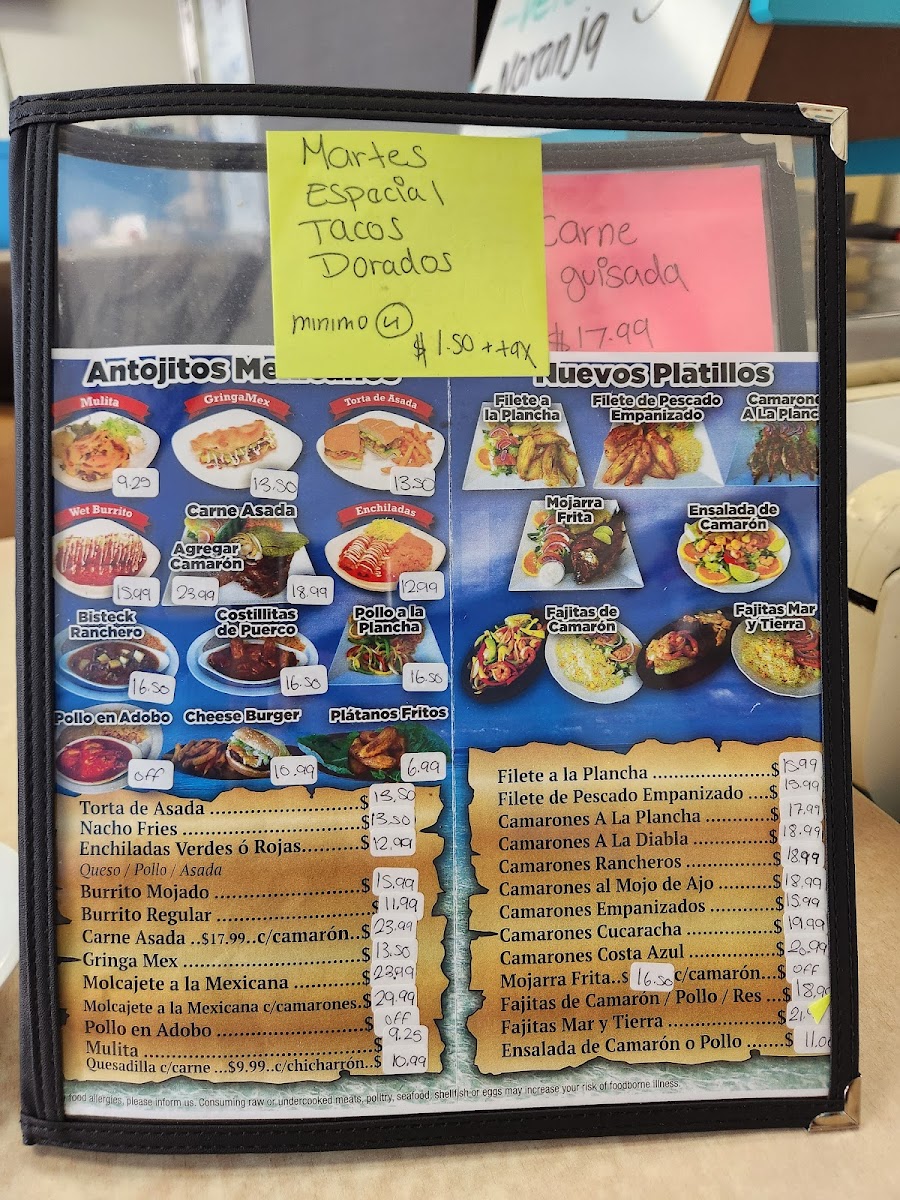 Naranja
Martes
Espacial
Tacos
Dorados
minimo 4
$1.50 + tax
Carne
guisada
$17.99
Antojitos
Mulita
9.25
GringaMex
13.50
Torta de Asada
13.50
Wet Burrito
15.99
Carne Asada
Agregar
Camarón
23.99
18.99
Enchiladas
12.99
Bisteck
Ranchero
16.50
Costillitas
de Puerco
16.50
Pollo a la
Plancha
16.50
Pollo en Adobo
OFF
Cheese Burger
10.99
Plátanos Fritos
6.99
Torta de Asada ........ $13.50
Nacho Fries ........ $13.50
Enchiladas Verdes ó Rojas ........ $12.99
Queso / Pollo / Asada
Burrito Mojado ........ $15.99
Burrito Regular ........ $11.99
Carne Asada ..$17.99..c/camarón..$23.99
Gringa Mex ........ $13.50
Molcajete a la Mexicana ........ $23.99
Molcajete a la Mexicana c/camarones.$29.99
Pollo en Adobo ........ $OFF
Mulita ........ $9.25
Quesadilla c/carne ...$9.99..c/chicharrón..$10.99
Nuevos Platillos
Filete a
la Plancha
Filete de Pescado
Empanizado
A La Planc
Mojarra
Frita
Ensalada de
Camarón
Fajitas de
Camarón
Fajitas Mar
y Tierra
Filete a la Plancha ........ $15.99
Filete de Pescado Empanizado ... $15.99
Camarones A La Plancha ........ $17.99
Camarones A La Diabla ........ $18.99
Camarones Rancheros ........ $18.99
Camarones al Mojo de Ajo ........ $18.99
Camarones Empanizados ........ $15.99
Camarones Cucaracha ........ $19.99
Camarones Costa Azul ........ $26.99
Mojarra Frita..$16.50 c/camarón...$OFF
Fajitas de Camarón / Pollo / Res ...$18.99
Fajitas Mar y Tierra ........ $21.
Ensalada de Camarón o Pollo ....... $11.00
food allergies, please inform us. Consuming raw or undercooked meats, poltry, seafood, shellfish or eggs may increase your risk of foodborne illness.